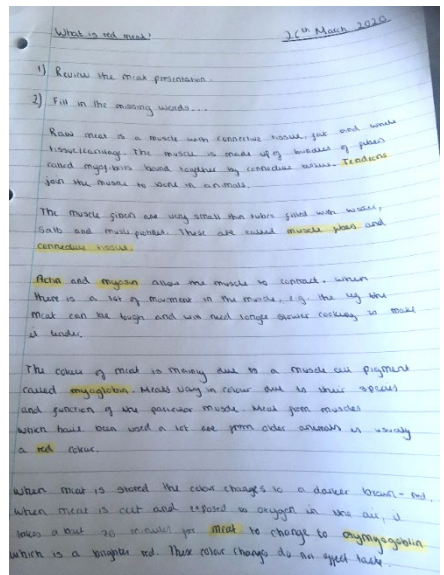 What is red meat?
26th March 2020
1) Review the meat presentation.
2) Fill in the missing words...
Raw meat is a muscle with connective tissue, fat and
tissue/cartilage. The muscle is made up of bundles of fibres
called myofibrils bound together by connective tissue. Tendons
join the muscle to bone in animals.
The muscle fibres are very small thin tubes filled with water,
salts and These are called muscle fibres and
connective tissue.
Actin and myosin allow the muscle to contract. When
there is a lot of movement in the muscle, e.g. the leg the
meat can be tough and will need longer slower cooking to make
it tender.
The colour of meat is mainly due to a muscle cell pigment
called myoglobin. Meats vary in colour due to their species
and function of the muscle. Meat from muscles
which have been used a lot are from older animals is usually
a red colour.
When meat is stored the colour changes to a darker brown-red.
When meat is cut and exposed to oxygen in the air, it
takes about 20 minutes for meat to change to oxymyoglobin
which is a brighter red. These colour changes do not affect taste.